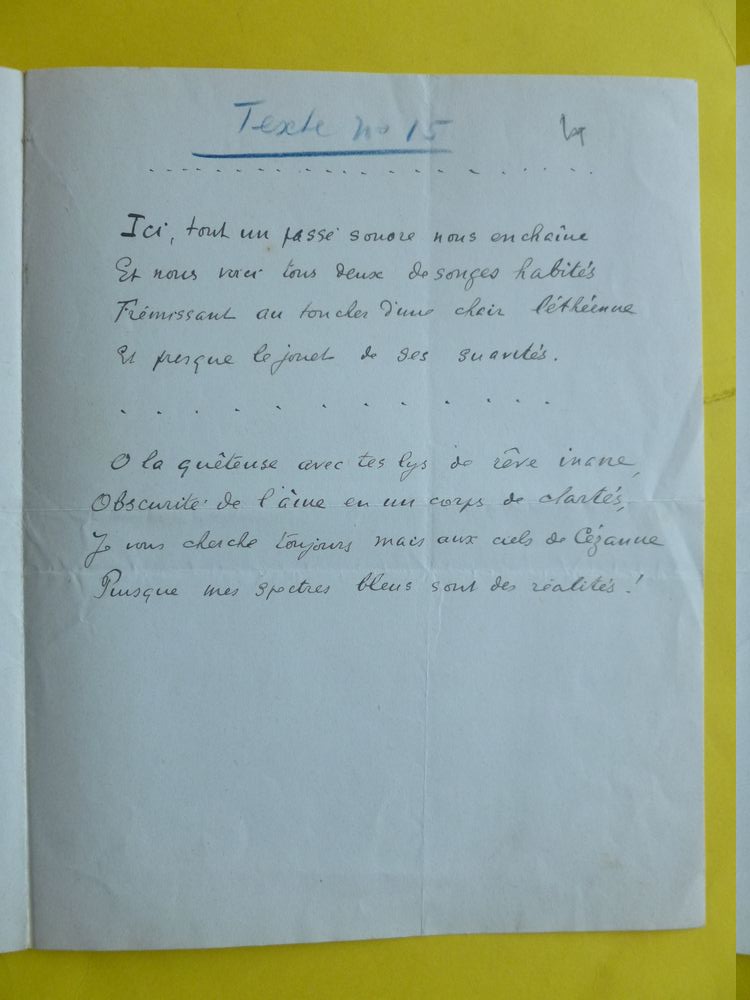 Texte no 15
. . . . . . . . . . . . . . . . . . .
Ici, tout un passé sonore nous enchaîne
Et nous voici tous deux de songes habités
Frémissant au toucher d'une chair léthéenne
Et presque le jouet de ses suavités.
. . . . . . . . . . . .
O la quêteuse avec tes lys de rêve inane,
Obscurité de l'âme en un corps de clartés,
Je vous cherche toujours mais aux ciels de Cézanne
Puisque mes spectres bleus sont des réalités !